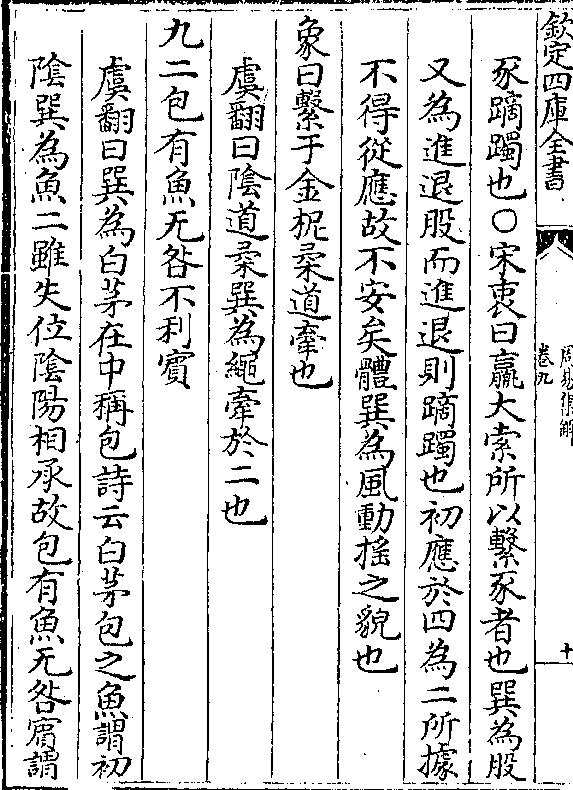 欽定四庫全書
周易集解
卷九
十
豕蹢躅也○宋衷曰羸大索所以繫豕者也巽為股
又為進退股而進退則蹢躅也初應於四為二所據
不得從應故不安矣體巽為風動搖之貌也
象曰繫于金柅柔道牽也
虞翻曰陰道柔巽為繩牽於二也
九二包有魚无咎不利賓
虞翻曰巽為白茅在中稱包詩云白茅包之魚謂初
陰巽為魚二雖失位陰陽相承故包有魚无咎賓謂